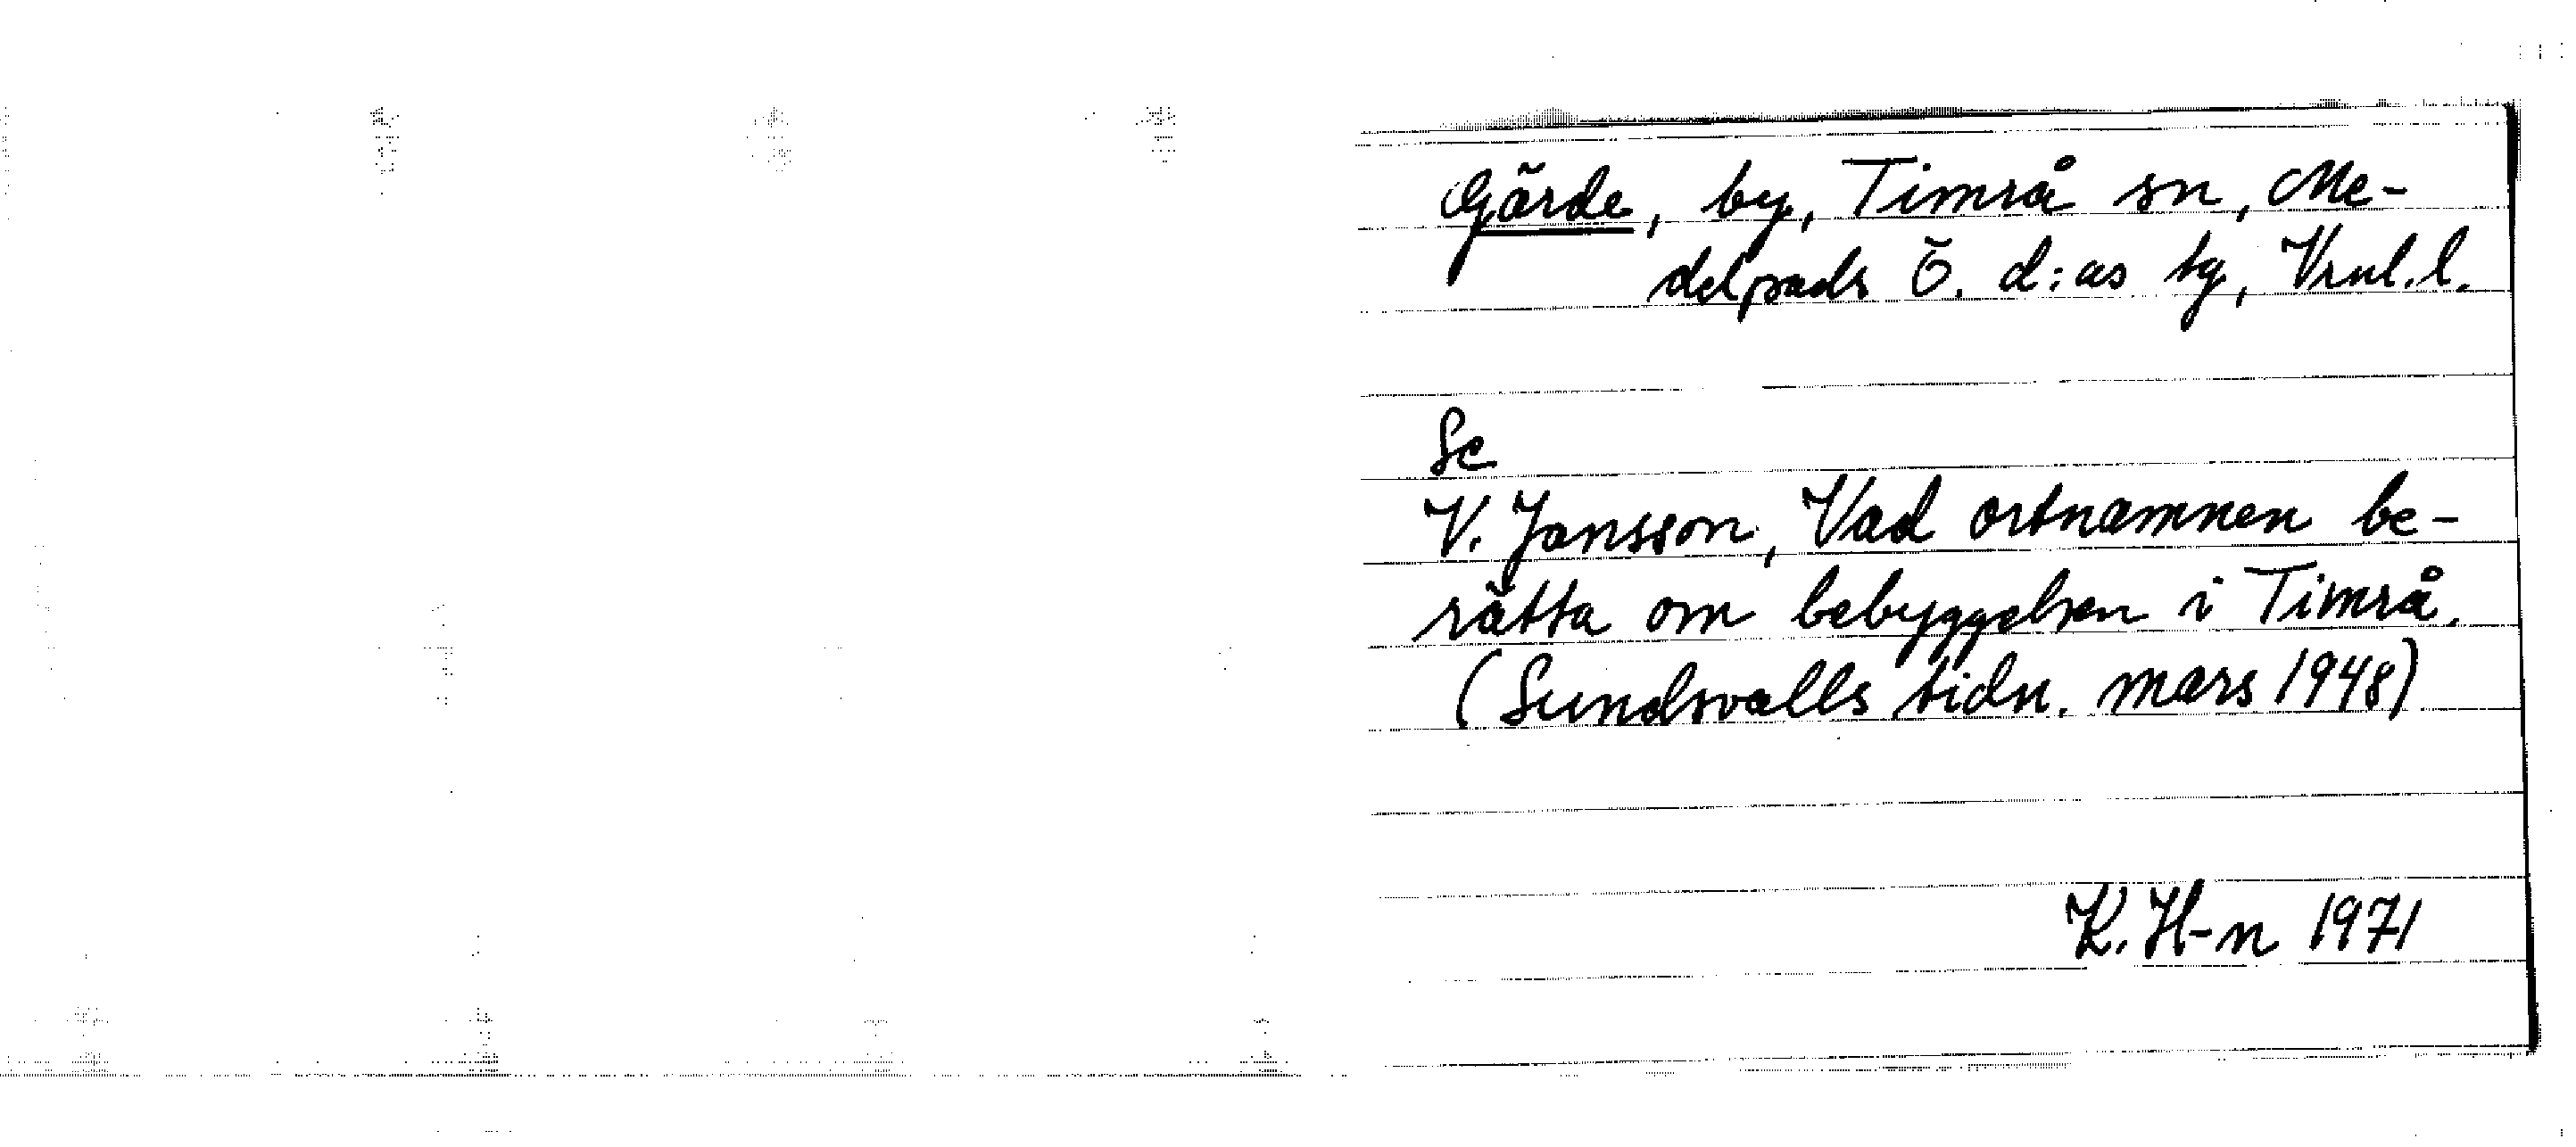 Gärde, by, Timrå sn, Me-
delpads Ö. d:as tg, Vrnl.l.
Se
V. Jansson, Vad ortnamnen be-
rätta om bebyggelsen i Timrå.
(Sundsvalls tidn. mars 1948)
K. H-n 1971